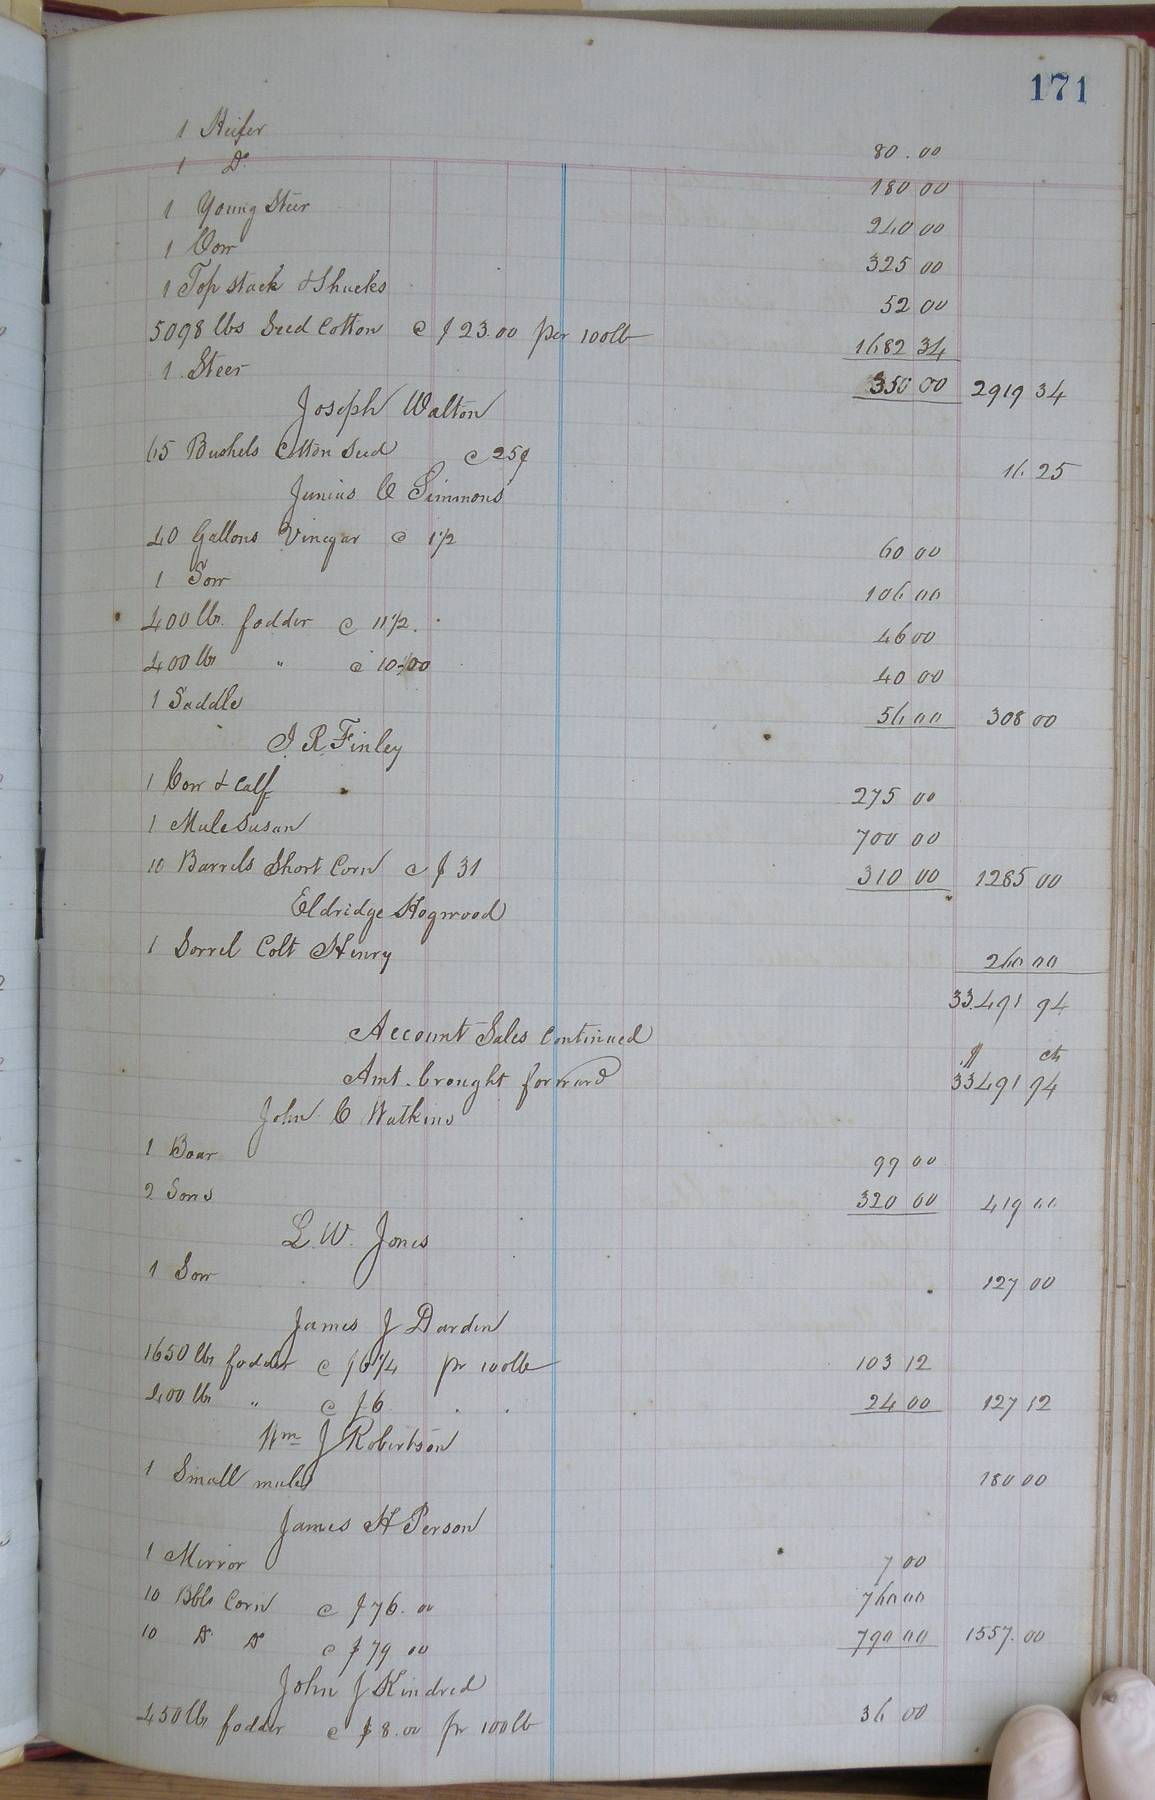 171
1 Heifer 80.00
1 Do 180 00
1 Young Steer 240 00
1 Cow 325 00
1 Top stack & Shucks 52 00
5098 lbs Seed Cotton @ $23.00 per 100lb 1682 34
1 Steer 350 00 2919 34
Joseph Walton
65 Bushels Cotton Seed @ 25¢ 16 25
Junius C Simmons
40 Gallons Vinegar @ 1 1/2 60 00
1 Sow 106 00
400 lbs. fodder @ 11 1/2. 46 00
400 lbs " @ 10.00 40 00
1 Saddle 56 00 308 00
J. R. Finley
1 Cow & Calf 275 00
1 Mule Susan 700 00
10 Barrels Short Corn @ $31 310 00 1285 00
Eldridge Hogwood
1 Sorrel Colt Henry 260 00
33.491 94
Account Sales Continued
$ cts
Amt. brought forward 33491 94
John C Watkins
1 Boar 99 00
2 Sows 320 00 419 00
L. W. Jones
1 Sow 127 00
James J Darden
1650 lbs fodder @ $6 1/4 pr 100lb 103 12
400 lbs " @ $6 24 00 127 12
Wm J Robertson
1 Small mules 180 00
James H Person
1 Mirror 7 00
10 Bbls Corn @ $76.00 760 00
10 Do Do @ $79 00 790 00 1557.00
John J Kindred
450 lbs fodder @ $8.00 pr 100lb 36 00